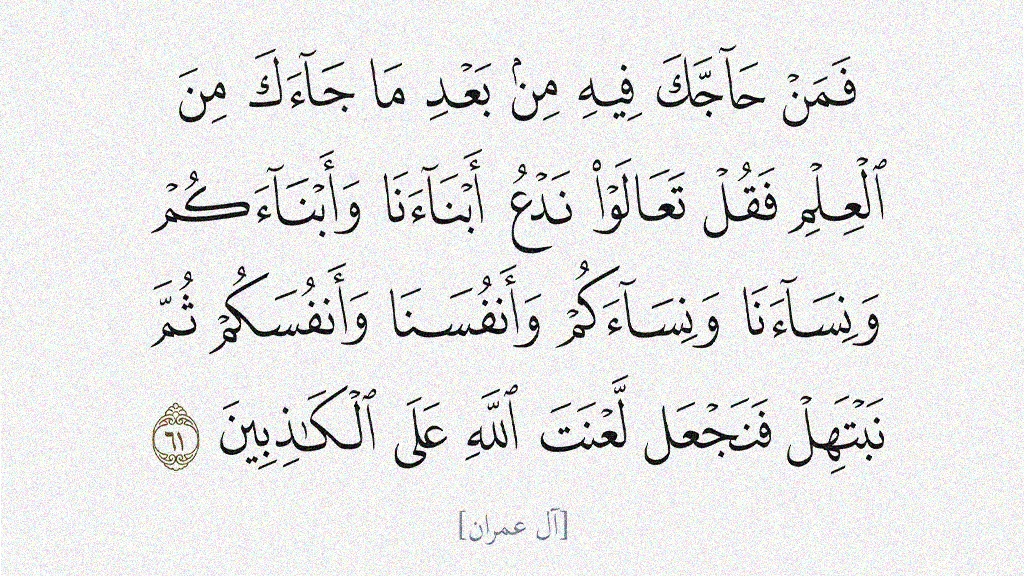 فَمَنْ حَآجَّكَ فِيهِ مِنۢ بَعْدِ مَا جَآءَكَ مِنَ
ٱلْعِلْمِ فَقُلْ تَعَالَوْا۟ نَدْعُ أَبْنَآءَنَا وَأَبْنَآءَكُمْ
وَنِسَآءَنَا وَنِسَآءَكُمْ وَأَنفُسَنَا وَأَنفُسَكُمْ ثُمَّ
نَبْتَهِلْ فَنَجْعَل لَّعْنَتَ ٱللَّهِ عَلَى ٱلْكَـٰذِبِينَ ٦١
[آل عمران]